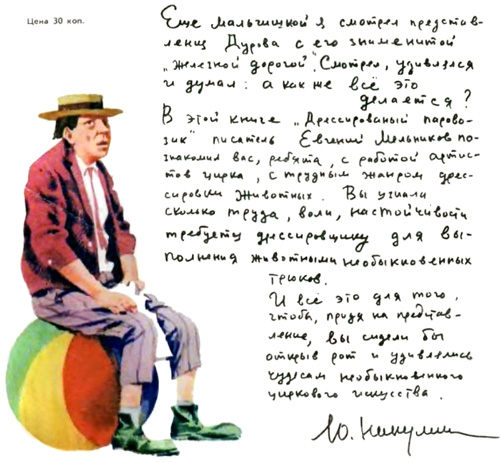 Цена 30 коп.
Еще мальчишкой я смотрел представ-
ления Дурова с его знаменитой
„железной дорогой". Смотрел, удивлялся
и думал: а как же всё это
делается?
В этой книге „Дрессированый парово-
зик" писатель Евгений Мельников по-
знакомил вас, ребята, с работой артис-
тов цирка, с трудным жанром дрес-
сировки животных. Вы узнали
сколько труда, воли, настойчивости
требуется дрессировщику для вы-
полнения животными необыкновенных
трюков.
И всё это для того,
чтобы, придя на представ-
ление, вы сидели бы
открыв рот и удивлялись
чудесам необыкновенного
циркового искусства.
Ю. Никулин